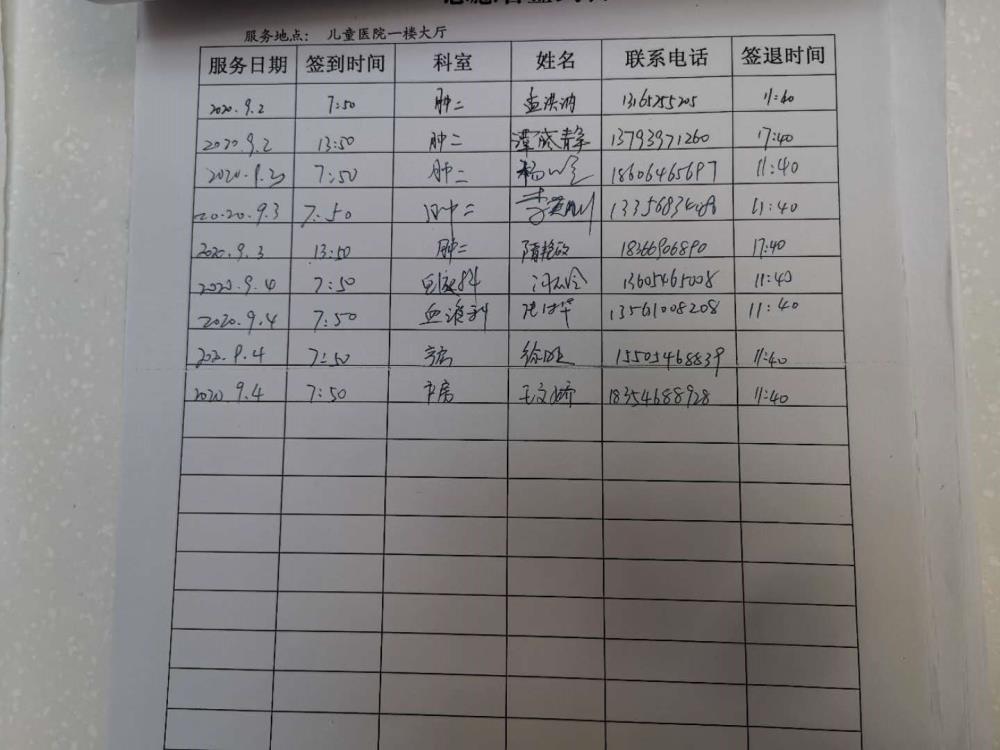 服务地点： 儿童医院一楼大厅
服务日期 签到时间 科室 姓名 联系电话 签退时间
2020.9.2 7:50 肿二 孟洪 13165255205 11:40
2020.9.2 13:50 肿二 谭成静 13793971260 17:40
2020.9.3 7:50 肿二 杨 18606465697 11:40
2020.9.3 7:50 肿二 李 11:40
2020.9.3 13:50 肿二 隋艳 18366906890 17:40
2020.9.4 7:50 13605465008 11:40
2020.9.4 7:50 血液科 13561008208 11:40
2020.9.4 7:50 徐 15505468839 11:40
2020.9.4 7:50 房 王文娇 18354688928 11:40